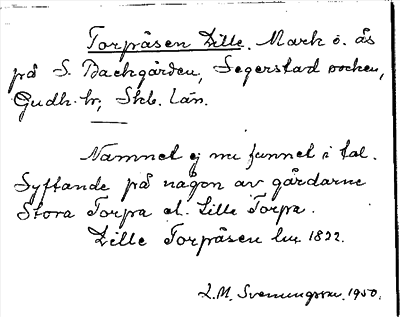 Torpåsen Lille. Mark o. ås
på S. Backgården, Segerstad socken,
Gudh. hr, Skb. län.
Namnet ej nu funnet i tal.
Syftande på någon av gårdarne
Stora Torpa el. Lille Torpa.
Lille Torpåsen lm 1822.
L.M. Svenungsson. 1950.